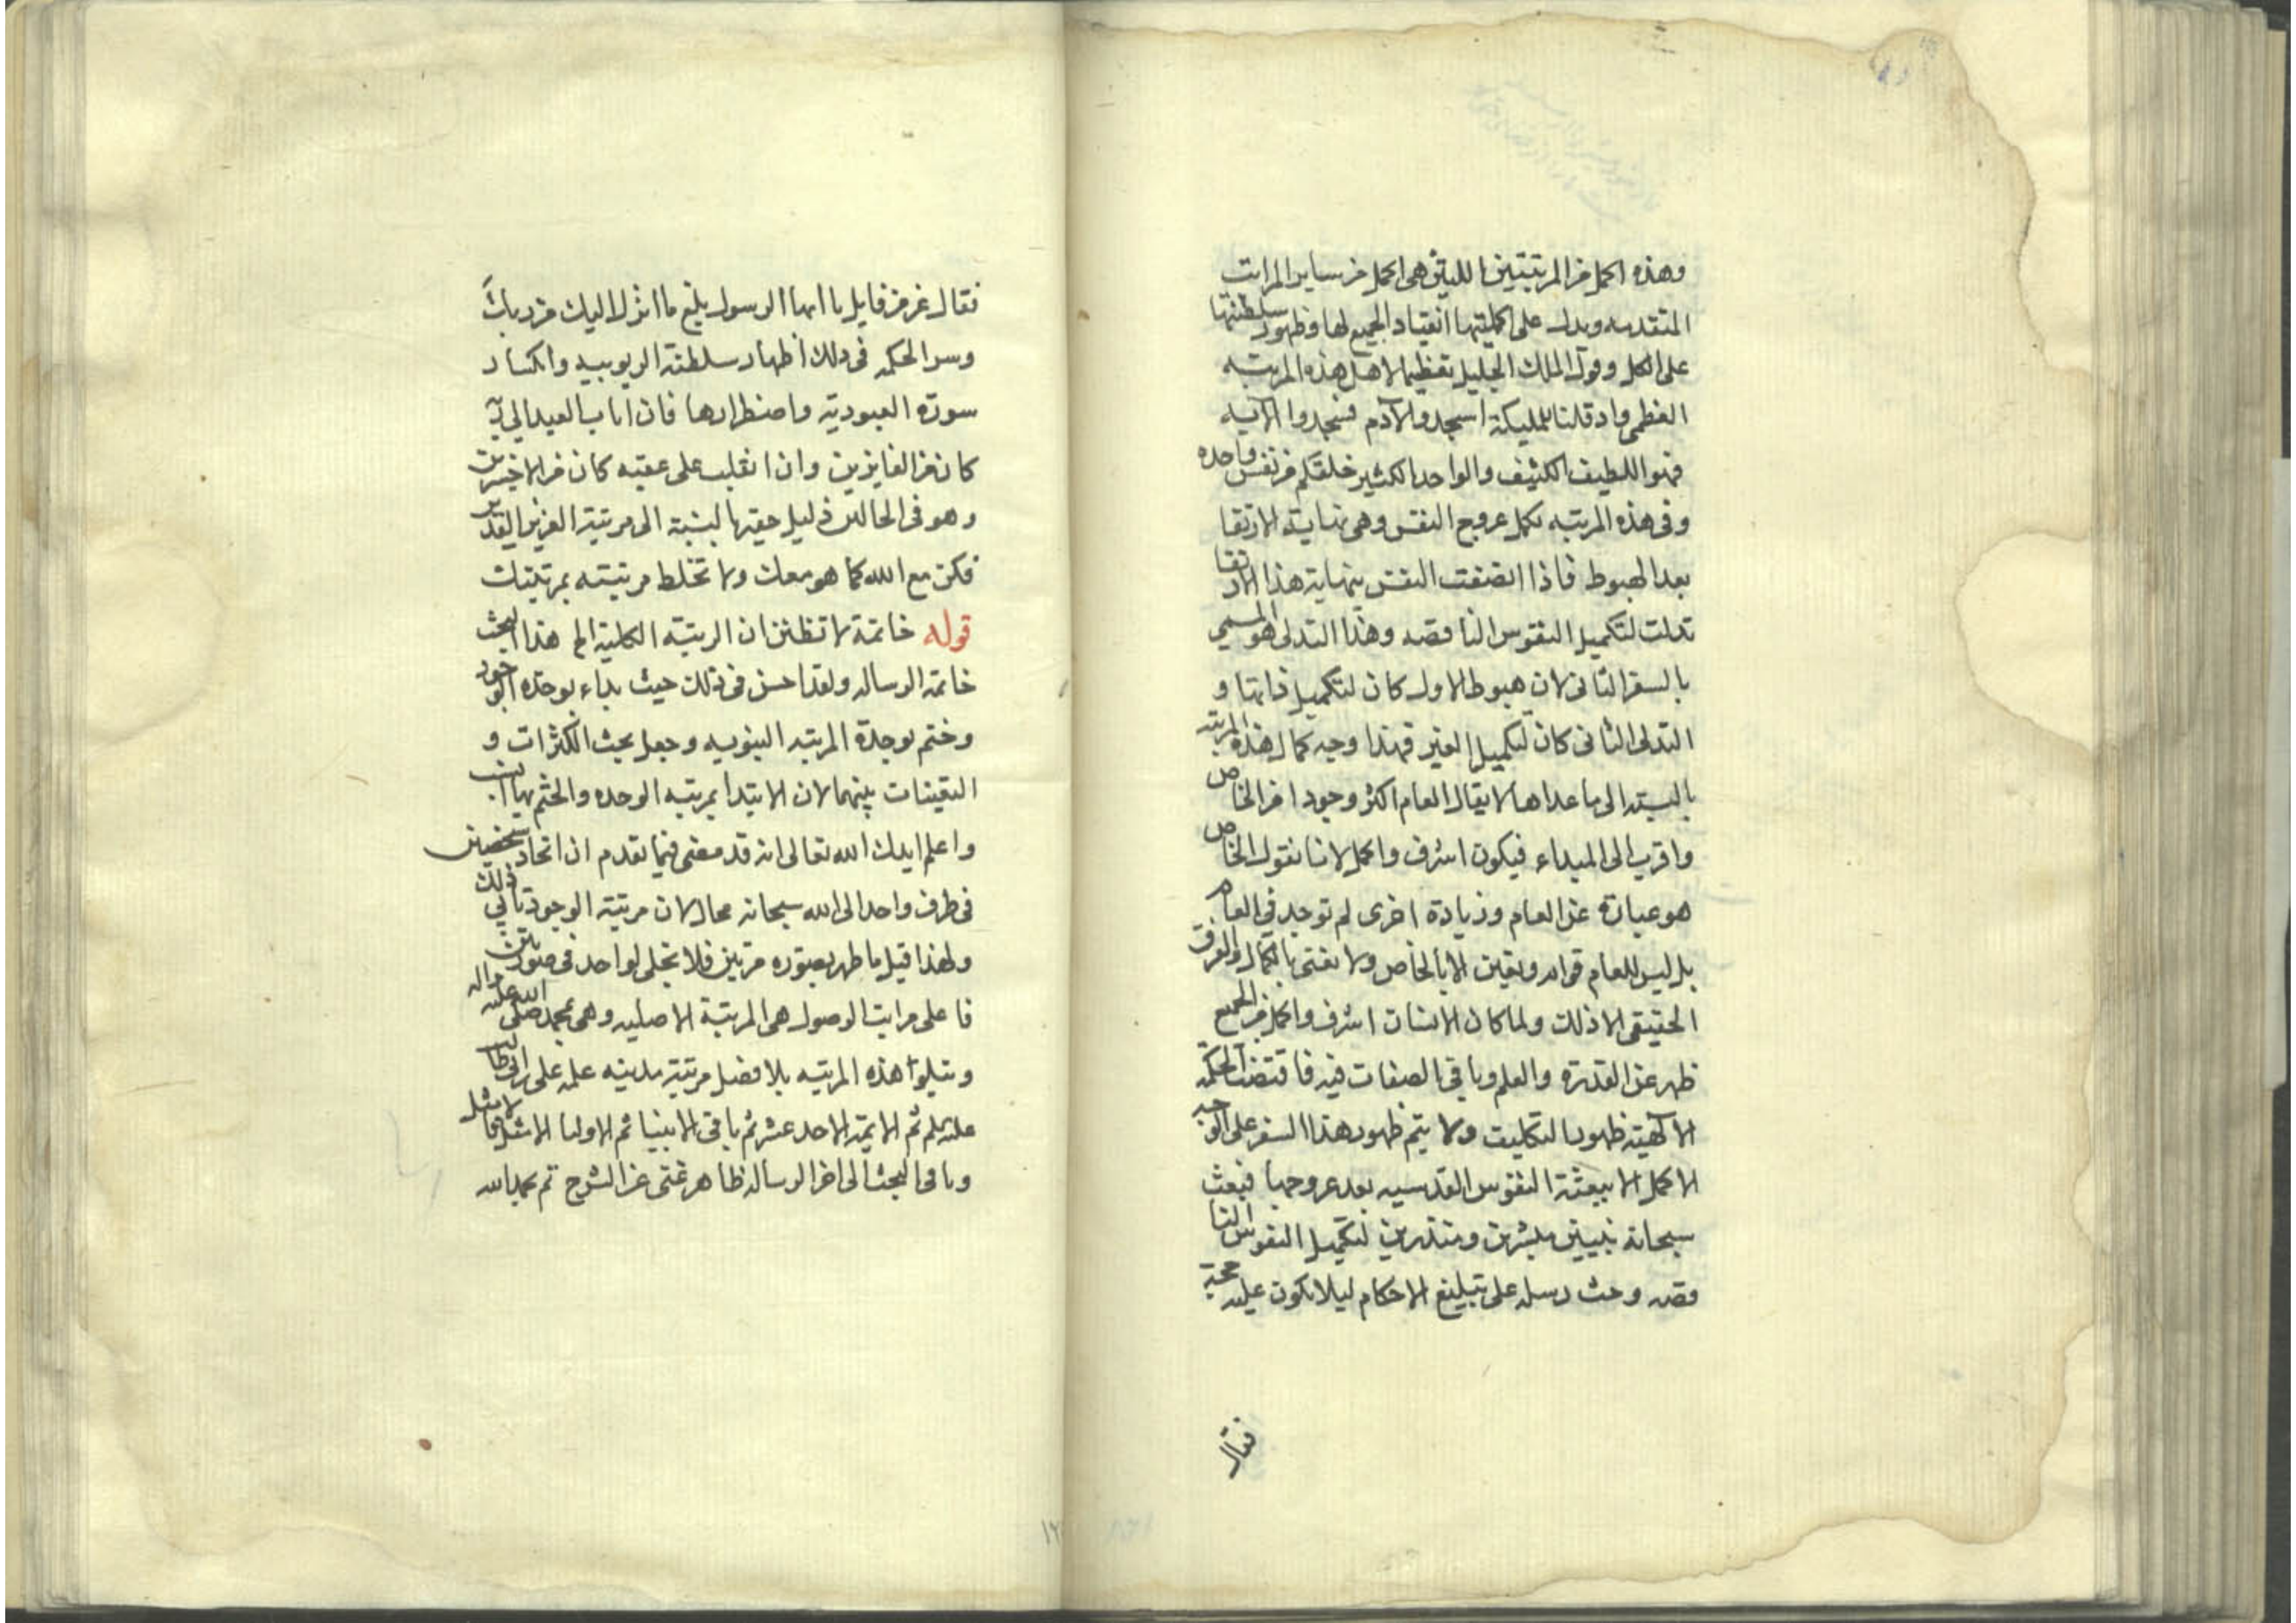 وهذه اكمل من المرتبتين اللتين هى اكمل من ساير المراتب
المتقدمه ويدل على اكمليتها انقياد الجميع لها وظهور سلطنتها
على الكل وقول الملك الجليل تعظيما لاهل هذه المرتبه
العظمى واذ قلنا للمليكة اسجدوا لآدم فسجدوا الآيه
فهو اللطيف الكثيف والواحد الكثير خلقكم من نفس واحده
وفى هذه المرتبه يكمل عروج النفس وهى نهاية الارتقا
بعد الهبوط فاذا اتصفت النفس بنهاية هذا الارتقا
تدلت لتكميل النفوس الناقصه وهذا التدلى هو المسمى
بالسفر الثانى لان هبوط الاول كان لتكميل ذاتها و
التدلى الثانى كان لتكميل الغير فهذا وجه كمال هذه المرتبه
بالنسبته الى ما عداها لا يقال العام اكثر وجودا من الخاص
واقرب الى المبداء فيكون اشرف واكمل لانا نقول الخاص
هو عبارة عن العام وزيادة اخرى لم توجد فى العام
بل ليس للعام قوام وتعين الا بالخاص ولا نعنى بالكمال والفرق
الحقيقى الا ذلك ولما كان الانسان اشرف واكمل من الجميع
ظهر عن القدرة والعلم وباقى الصفات فيه فاقتضت الحكمه
الآلهيته ظهور التكليف ولا يتم ظهور هذا السفر على الوجه
الاكمل الا ببعثة النفوس القدسيه بعد عروجها فبعث
سبحانه نبيين مبشرين ومنذرين لتكميل النفوس النا
قصه وحث رسله على تبليغ الاحكام ليلا يكون عليه حجة
فقال
فقال عز من قايل يا ايها الرسول بلغ ما انزل اليك من ربك
وسر الحكمه فى ذلك اظهار سلطنة الربوبيه وانكسار
سورة العبودية واضطرارها فان اناب العبد الى ربه
كان من الفايزين وان انقلب على عقبه كان من الاخسرين
وهو فى الحالين ذليل حقير بالنسبة الى مرتبة العزيز القدير
فكن مع الله كما هو معك ولا تخلط مرتبته بمرتبتك
قوله خاتمة لا تظنن ان الرتبته الكلية الخ هذا البحث
خاتمة الرساله ولقد احسن فى ذلك حيث بداء بوحدة الوجود
وختم بوحدة المرتبه النبويه وجعل بحث الكثرات و
التعينات بينهما لان الابتدا بمرتبه الوحده والختم بها انسب
واعلم ايدك الله تعالى انه قد مضى فيما تقدم ان اتحاد شخصين
فى طرف واحد الى الله سبحانه محال لان مرتبة الوجود تابى ذلك
ولهذا قيل ما ظهر بصوره مرتين فلا تجلى لواحد فى صورتين
فاعلى مراتب الوصول هى المرتبة الاصليه وهى محمد صلى الله عليه واله
ويتلوا هذه المرتبه بلا فصل مرتبة مدينه علمه على ابن ابى طالب
عليه السلم ثم الايمة الاحد عشر ثم باقى الانبيا ثم الاوليا الامثل فالامثل
وباقى البحث الى اخر الرساله ظاهر غنى عن الشرح تم بحمد الله